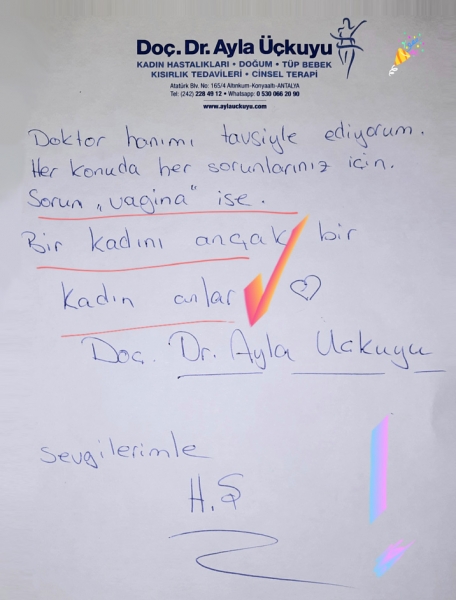 Doç. Dr. Ayla Üçkuyu
KADIN HASTALIKLARI • DOĞUM • TÜP BEBEK
KISIRLIK TEDAVİLERİ • CİNSEL TERAPİ
Atatürk Blv. No: 165/4 Altınkum-Konyaaltı-ANTALYA
Tel: (242) 228 49 12 • Whatsapp: 0 530 066 20 90
www.aylauckuyu.com
Doktor hanımı tavsiyle ediyorum.
Her konuda her sorunlarınız için.
Sorun „vagina" ise.
Bir kadını ançak bir
kadın anlar
Doç. Dr. Ayla Uckuyu
Sevgilerimle
H.Ş